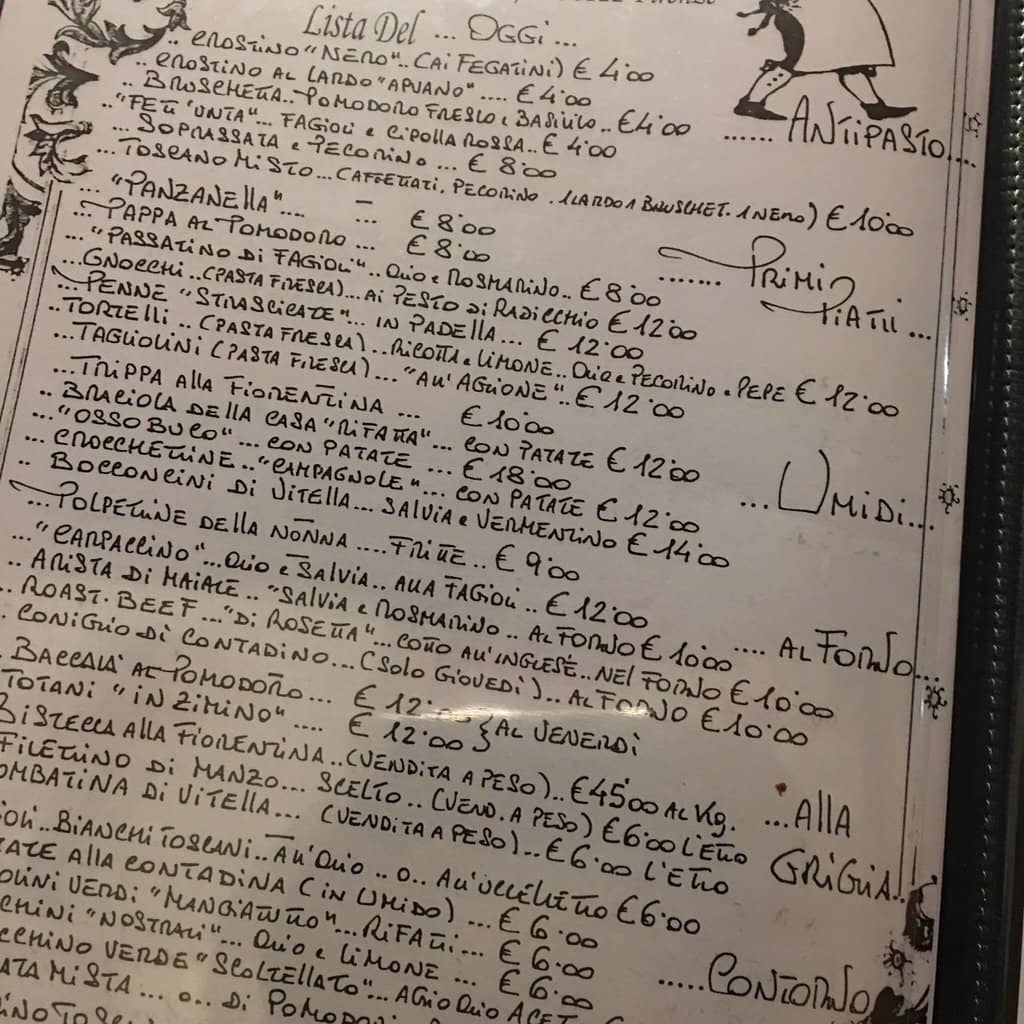 Lista Del ... OGGI ...
.. CROSTINO "NERO".. (AI FEGATINI) € 4'00
.. CROSTINO AL LARDO "APUANO" .... € 4'00
.. BRUSCHETTA.. POMODORO FRESCO e BASILICO .. € 4'00
...... ANTIPASTO....
.."FETT'UNTA"... FAGIOLI e CIPOLLA ROSSA.. € 4'00
... SOPRASSATA e PECORINO ... € 8'00
... TOSCANO MISTO... (AFFETTATI. PECORINO. 1 LARDO 1 BRUSCHET. 1 NERO) € 10'00
... "PANZANELLA".... ... € 8'00
... PAPPA AL POMODORO ... € 8'00
....... PRIMI
PIATTI ...
... "PASSATINO DI FAGIOLI".. OLIO e ROSMARINO.. € 8'00
...GNOCCHI ..(PASTA FRESCA)... AI PESTO DI RADICCHIO € 12'00
...PENNE "STRASCICATE"... IN PADELLA ... € 12'00
..TORTELLI .. (PASTA FRESCA) .. RICOTTA e LIMONE.. OLIO e PECORINO e PEPE € 12'00
...TAGLIOLINI (PASTA FRESCA) ... "ALL'AGLIONE".. € 12'00
... TRIPPA ALLA FIORENTINA ... € 10'00
.. BRACIOLA DELLA CASA "RIFATTA"... CON PATATE € 12'00
... "OSSOBUCO"... CON PATATE ... € 18'00
... UMIDI...
... CROCCHETTINE.. "CAMPAGNOLE"... CON PATATE € 12'00
.. BOCCONCINI DI VITELLA... SALVIA e VERMENTINO € 14'00
...POLPETTINE DELLA NONNA .... FRITTE .. € 9'00
... "CARPACCINO"... OLIO e SALVIA.. ALLA FAGIOLI .. € 12'00
.. ARISTA DI MAIALE.. "SALVIA e ROSMARINO.. AL FORNO € 10'00
.... AL FORNO...
.. ROAST. BEEF ..."DI ROSETTA"... COTTO ALL'INGLESE.. NEL FORNO € 10'00
. CONIGLIO DI CONTADINO... (SOLO GIOVEDÌ).. AL FORNO € 10'00
BACCALÀ AL POMODORO ... € 12'00 } AL VENERDÌ
TOTANI "IN ZIMINO" .... € 12'00
BISTECCA ALLA FIORENTINA..(VENDITA A PESO).. € 45'00 AL Kg.
FILETTINO DI MANZO... SCELTO.. (VEND. A PESO) € 6'00 L'ETTO
...ALLA
GRIGLIA..
OMBATINA DI VITELLA... (VENDITA A PESO)... € 6'00 L'ETTO
IOLI..BIANCHI TOSCANI.. ALL'OLIO .. O.. ALL'UCCELLETTO € 6'00
ATE ALLA CONTADINA (IN UMIDO) ... € 6'00
OLINI VERDI "MANGIATUTTO"... RIFATTI... € 6'00
CHINI "NOSTRALI"... OLIO e LIMONE ... € 6'00
..... CONTORNO
CCHINO VERDE "SCOLTELLATO"... AGLIO OLIO ACET
ATA MISTA ... O.. DI POMODOR
INO TOSC